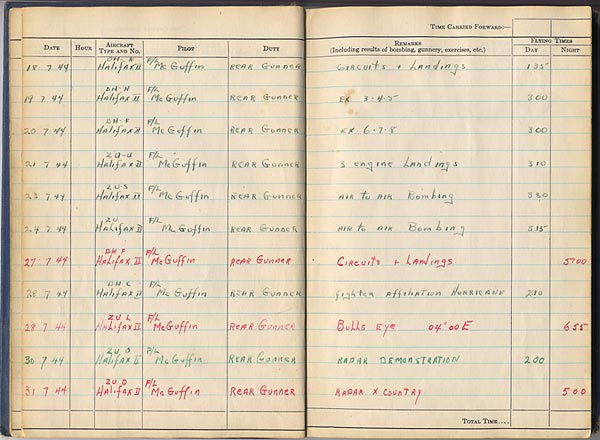 TIME CARRIED FORWARD:—
DATE HOUR AIRCRAFT TYPE AND NO. PILOT DUTY REMARKS (Including results of bombing, gunnery, exercises, etc.) FLYING TIMES DAY NIGHT
18 7 44 DH-K HALIFAX II F/L McGuffin REAR GUNNER CIRCUITS + LANDINGS 1 35
19 7 44 DH-H HALIFAX II F/L McGuffin REAR GUNNER EX 3-4-5 3 00
20 7 44 DH-F HALIFAX II F/L McGuffin REAR GUNNER EX 6-7-8 3 00
21 7 44 ZU-U HALIFAX II F/L McGuffin REAR GUNNER 3 engine LANDINGS 3 10
23 7 44 ZU-S HALIFAX II F/L McGuffin REAR GUNNER AIR to AIR BOMBING 3 30
24 7 44 ZU HALIFAX II F/L McGuffin REAR GUNNER AIR to AIR BOMBING 3 15
27 7 44 DH F HALIFAX II F/L McGuffin REAR GUNNER CIRCUITS + LANDINGS 5 00
28 7 44 DH C HALIFAX II F/L McGuffin REAR GUNNER FIGHTER AFFILIATION HURRICANE 2 10
29 7 44 ZU L HALIFAX II F/L McGuffin REAR GUNNER BULLS EYE 04°00E 6 55
30 7 44 ZU HALIFAX II F/L McGuffin REAR GUNNER RADAR DEMONSTRATION 2 00
31 7 44 ZU D HALIFAX II F/L McGuffin REAR GUNNER RADAR X COUNTRY 5 00
TOTAL TIME....